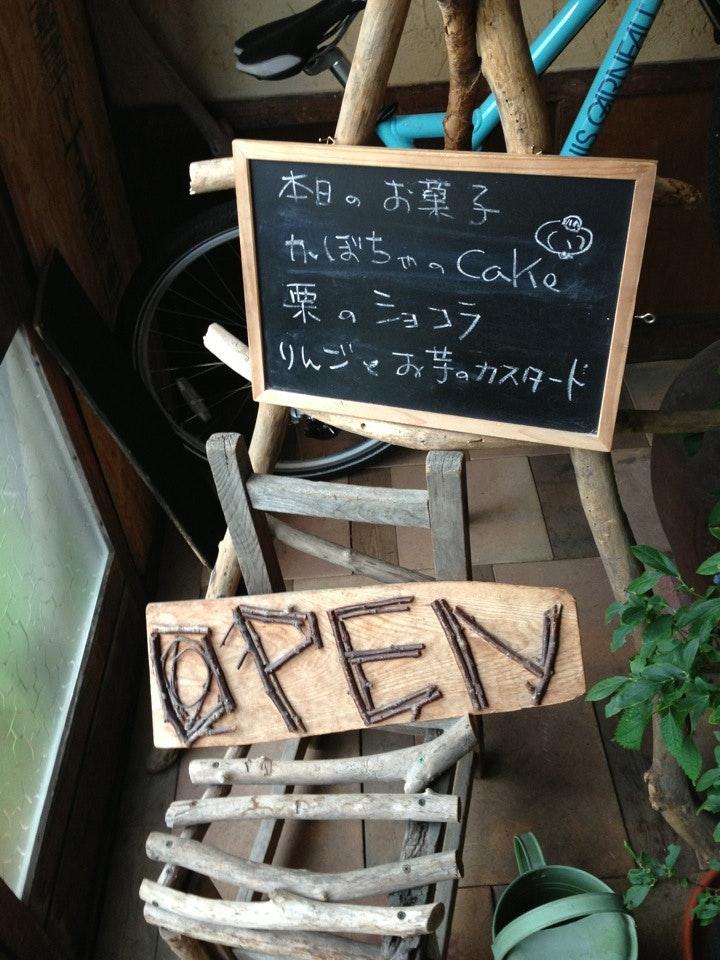 UIS GARNEAU
本日の お菓子
かぼちゃの Cake
栗の ショコラ
りんごと お芋のカスタード
OPEN